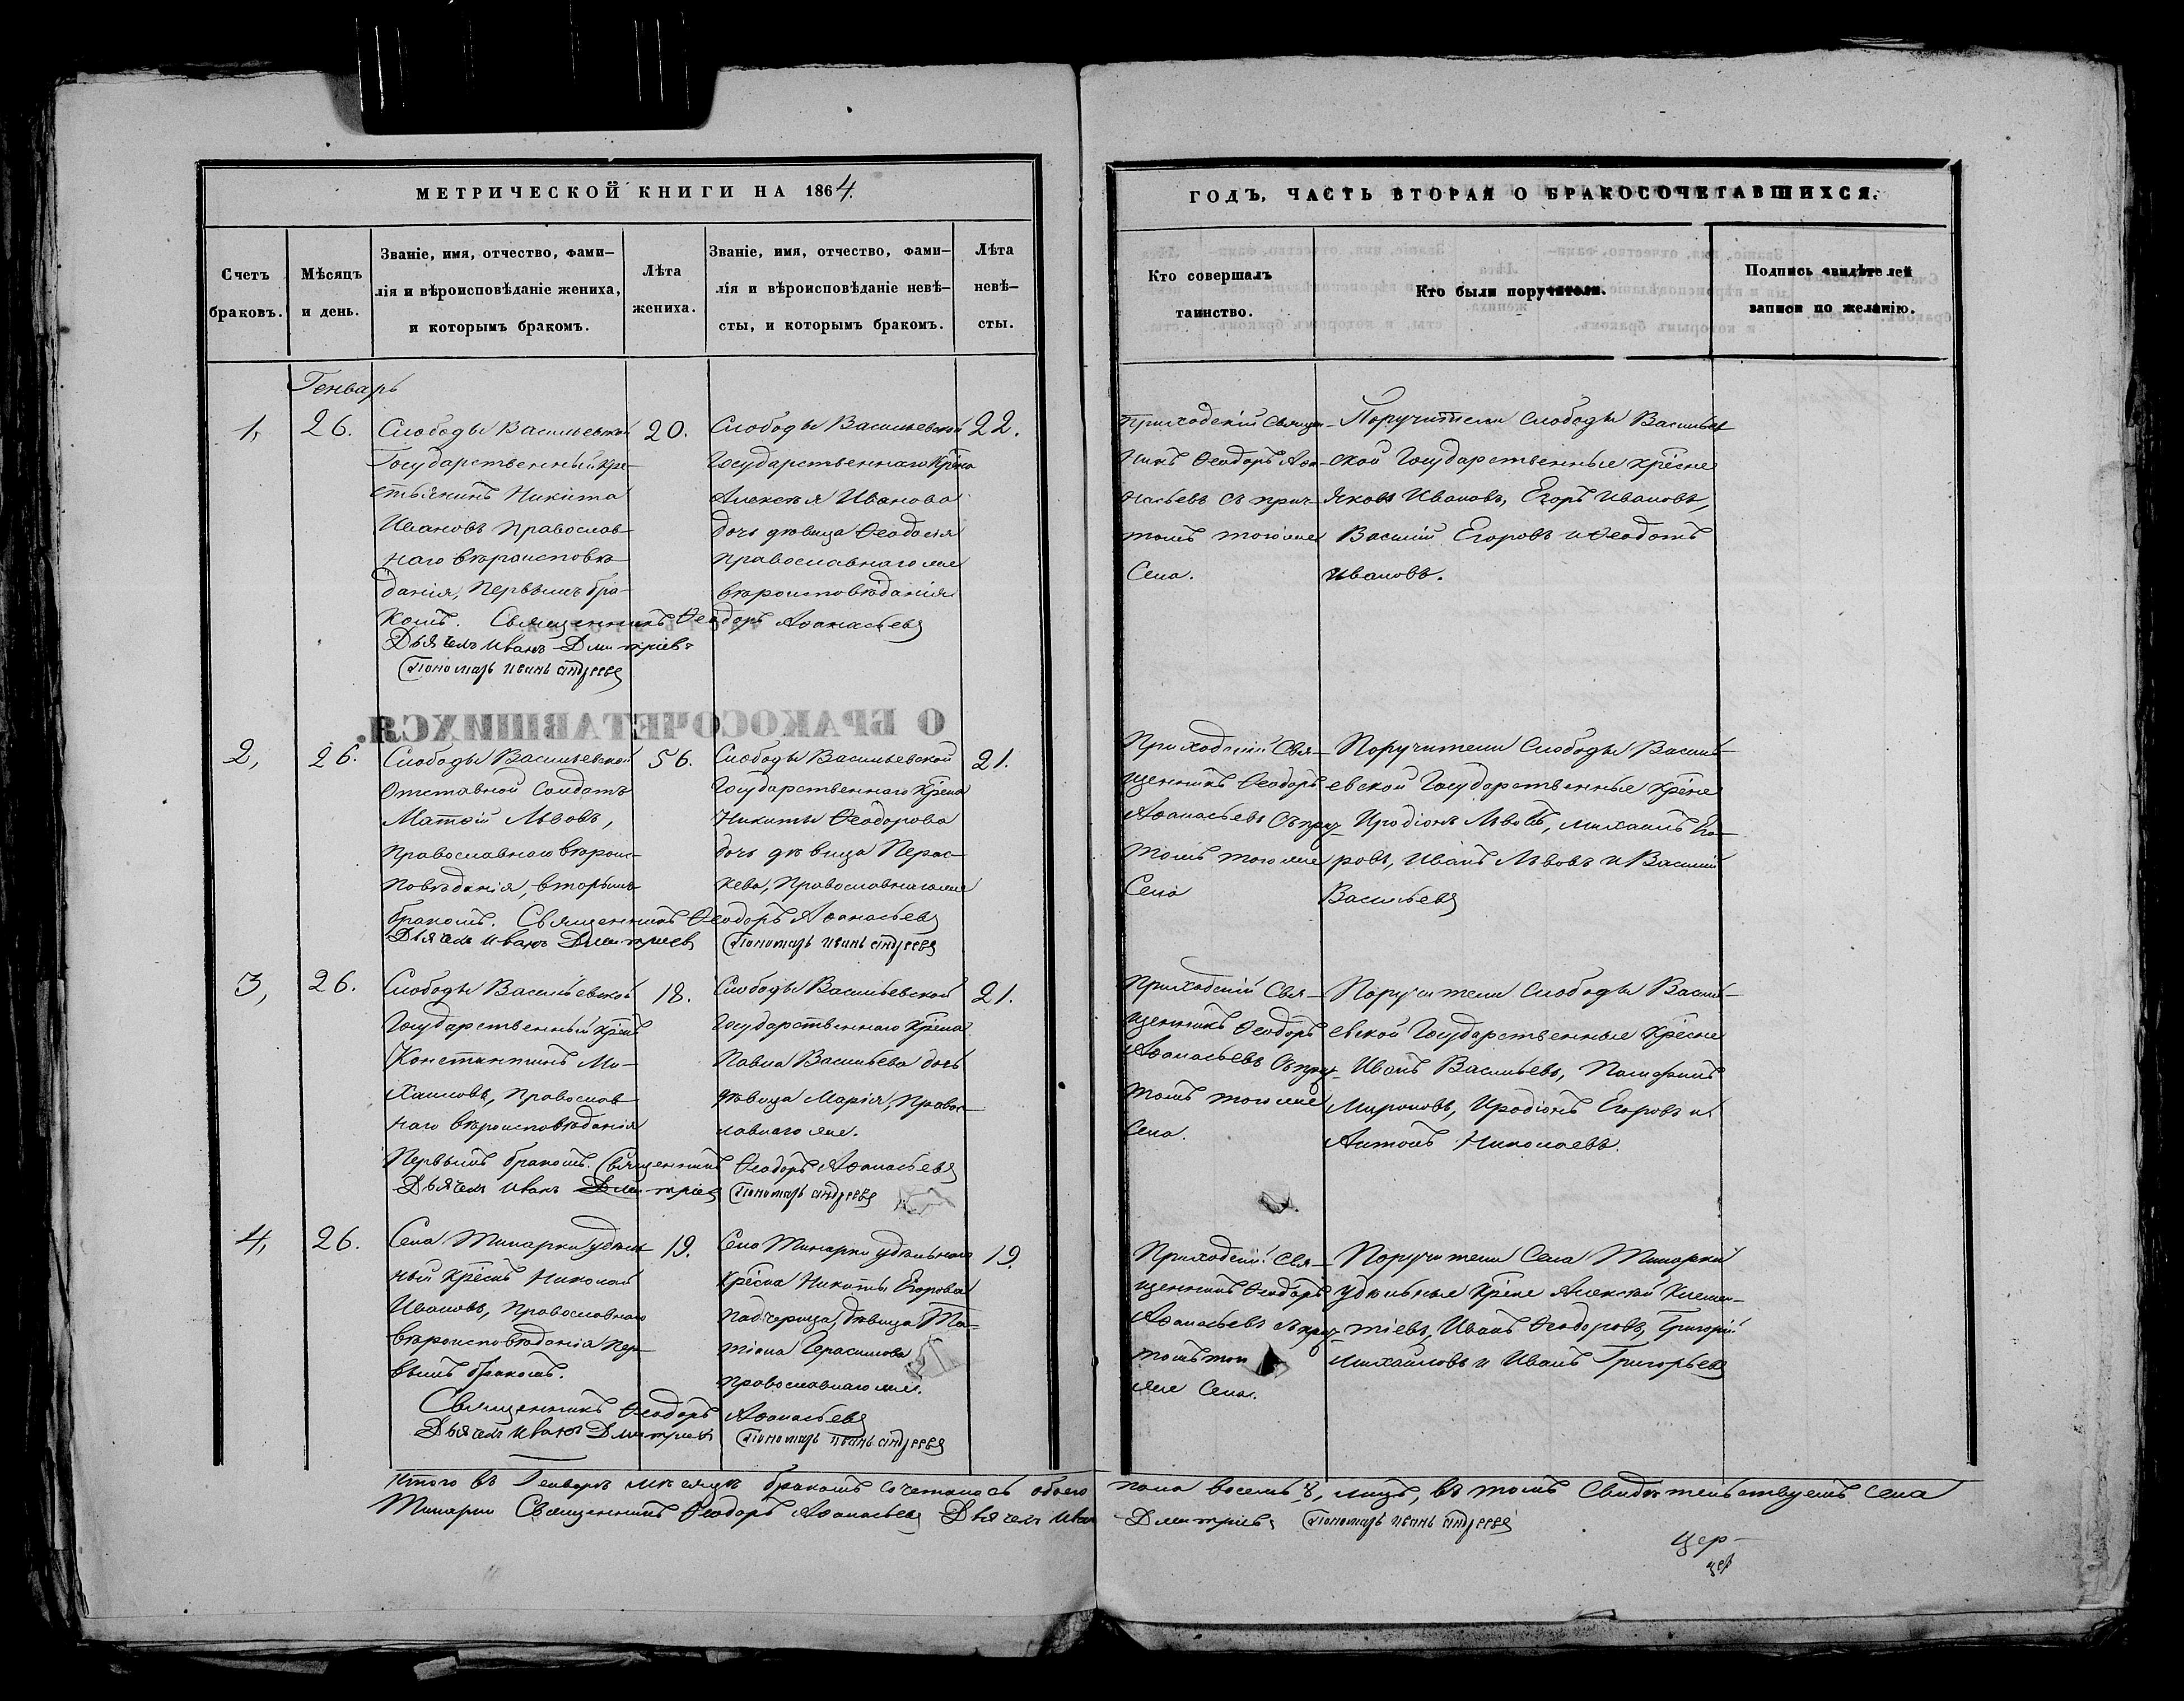 МЕТРИЧЕСКОЙ КНИГИ НА 1864.
Счетъ браковъ.
Мѣсяцъ и день.
Званіе, имя, отчество, фами-
лія и вѣроисповѣданіе жениха,
и которымъ бракомъ.
Лѣта жениха.
Званіе, имя, отчество, фами-
лія и вѣроисповѣданіе невѣ-
сты, и которымъ бракомъ.
Лѣта невѣ-
сты.
Генварь
1,
26.
Слободы Васильевской
Государственный Кре-
стьянинъ Никита
Ивановъ Православ-
наго вѣроисповѣ-
данія, Первымъ бра-
комъ.
20.
Слободы Васильевской
Государственнаго Крѣна
Алексѣя Иванова
дочь дѣвица Ѳеодосія
Православнаго же
вѣроисповѣданія
22.
Священникъ Ѳеодоръ Аѳанасьевъ
Дьячекъ Иванъ Дмитріевъ
Пономарь Иванъ Андреевъ
2,
26.
Слободы Васильевской
Отставной Солдатъ
Матѳій Львовъ,
Православнаго вѣроис-
повѣданія, вторымъ
бракомъ.
56.
Слободы Васильевской
Государственнаго Крѣна
Никиты Ѳеодорова
дочь дѣвица Парас-
кева, Православнаго же
21.
Священникъ Ѳеодоръ Аѳанасьевъ
Дьячекъ Иванъ Дмитріевъ Пономарь Иванъ Андреевъ
3,
26.
Слободы Васильевской
Государственный Крѣнъ
Константинъ Ми-
хаиловъ, Православ-
наго вѣроисповѣданія
Первымъ бракомъ.
18.
Слободы Васильевской
Государственнаго Крѣна
Павла Васильева дочь
дѣвица Марія, Правос-
лавнаго же.
21.
Священникъ Ѳеодоръ Аѳанасьевъ
Дьячекъ Иванъ Дмитріевъ Пономарь Андреевъ
4,
26.
Николай
Ивановъ, Православнаго
вѣроисповѣданія Пер-
вымъ бракомъ.
19.
Крѣсна Никиты Егорова
падчерица, дѣвица Та-
тіана Герасимова
Православнаго же.
19.
Священникъ Ѳеодоръ Аѳанасьевъ
Дьячекъ Иванъ Дмитріевъ Пономарь Иванъ Андреевъ
ГОДЪ, ЧАСТЬ ВТОРАЯ О БРАКОСОЧЕТАВШИХСЯ.
Кто совершалъ
таинство.
Кто были поручители.
Подпись свидѣтелей
записи по желанію.
Приходскій Священ-
никъ Ѳеодоръ Аѳа-
насьевъ съ прич-
томъ того же
Села.
Поручители Слободы Васильев-
ской Государственные крѣсне
Яковъ Ивановъ, Егоръ Ивановъ,
Василій Егоровъ и Ѳеодотъ
Ивановъ.
Приходскій Свя-
щенникъ Ѳеодоръ
Аѳанасьевъ Съ прич-
томъ того же
Села
Поручители Слободы Василь-
евской Государственные Крѣсне
Иродіонъ Львовъ, Михаилъ Его-
ровъ, Иванъ Львовъ и Василій
Васильевъ
Приходскій Свя-
щенникъ Ѳеодоръ
Аѳанасьевъ Съ прич-
томъ того же
Села.
Поручители Слободы Василь-
евской Государственные Крѣсне
Иванъ Васильевъ, Памфилъ
Мироновъ, Иродіонъ Егоровъ и
Антонъ Николаевъ.
Приходскій Свя-
щенникъ Ѳеодоръ
Аѳанасьевъ съ прич-
томъ того
же Села.
Поручители Села
удѣльные Крѣсне Алексѣй Клемен-
тіевъ, Иванъ Ѳеодоровъ, Григорій
Михайловъ и Иванъ Григорьевъ
Итого въ Генварѣ мѣсяцѣ бракомъ сочеталось обоего пола восемь 8, лицъ, въ томъ Свидѣтельствуетъ Села
Священникъ Ѳеодоръ Аѳанасьевъ Дьячекъ Иванъ Дмитріевъ Пономарь Иванъ Андреевъ
Цер-